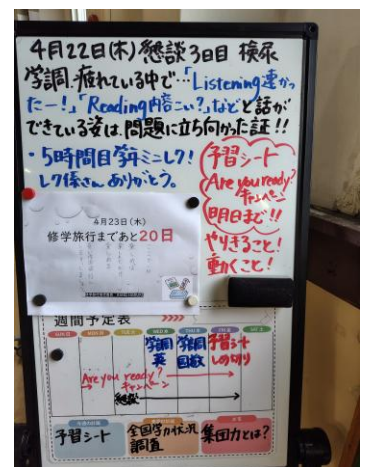 4月22日(木)懇談3日目 検尿
学調.疲れている中で…「Listening速かっ
たー!」「Reading内容こい?」などと話が
できている姿は、問題に立ち向かった証!!
・5時間目学年ミニレク!
レク係さんありがとう。
予習シート
Are you ready?
キャンペーン
明日まで!!
やりきること!
動くこと!
4月23日(木)
修学旅行まであと20日
週間予定表
SUN 日
MON 月
TUE 火
WED 水
THU 木
FRI 金
SAT 土
学調
英
学調
国数
予習シート
しめ切り
Are you ready?
キャンペーン
懇談
予習シート
全国学力状況
調査
集団力とは?